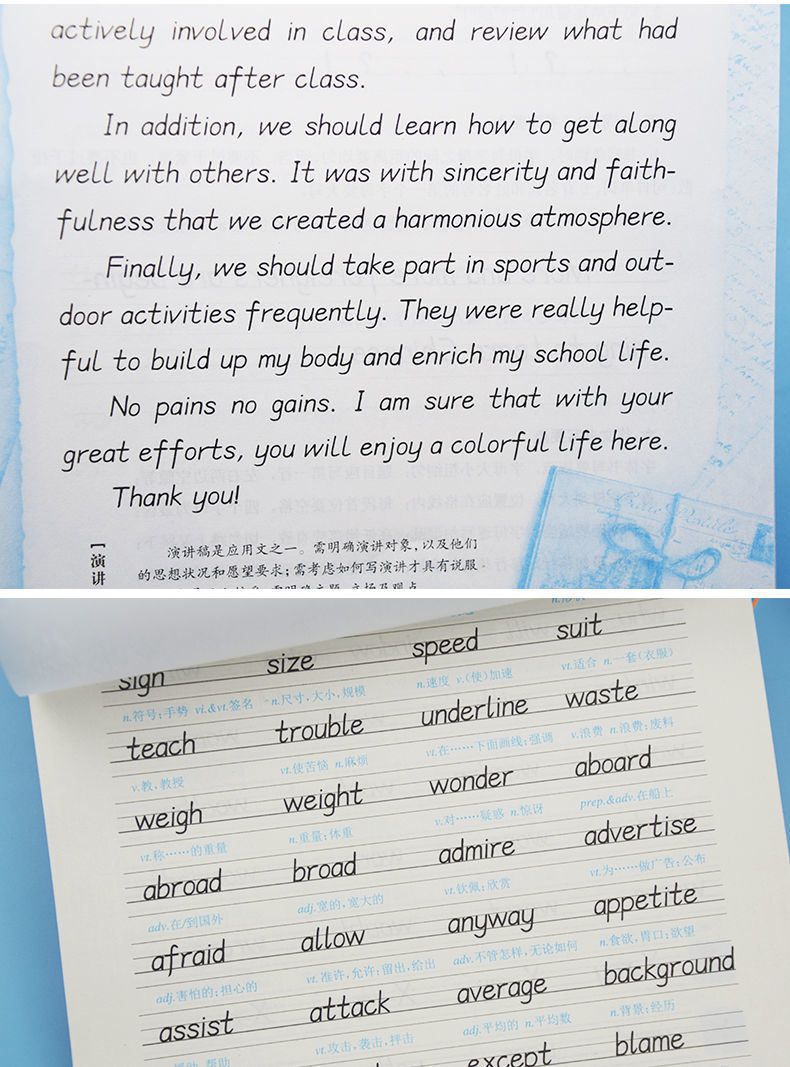 actively involved in class, and review what had
been taught after class.
In addition, we should learn how to get along
well with others. It was with sincerity and faith-
fulness that we created a harmonious atmosphere.
Finally, we should take part in sports and out-
door activities frequently. They were really help-
ful to build up my body and enrich my school life.
No pains no gains. I am sure that with your
great efforts, you will enjoy a colorful life here.
Thank you!
【演讲
演讲稿是应用文之一。需明确演讲对象,以及他们
的思想状况和愿望要求;需考虑如何写演讲才具有说服
sign size speed suit
n.符号;手势 vi.&vt.签名 n.尺寸,大小,规模 n.速度 v.(使)加速 vt.适合 n.一套(衣服)
teach trouble underline waste
v.教,教授 vt.使苦恼 n.麻烦 vt.在……下面画线;强调 v.浪费 n.浪费;废料
weigh weight wonder aboard
vt.称……的重量 n.重量;体重 v.对……疑惑 n.惊讶 prep.&adv.在船上
abroad broad admire advertise
adv.在/到国外 adj.宽的,宽大的 vt.钦佩;欣赏 vt.为……做广告;公布
afraid allow anyway appetite
adj.害怕的;担心的 vt.准许,允许;留出,给出 adv.不管怎样,无论如何 n.食欲,胃口;欲望
assist attack average background
vt.攻击,袭击,抨击 adj.平均的 n.平均数 n.背景;经历
except blame